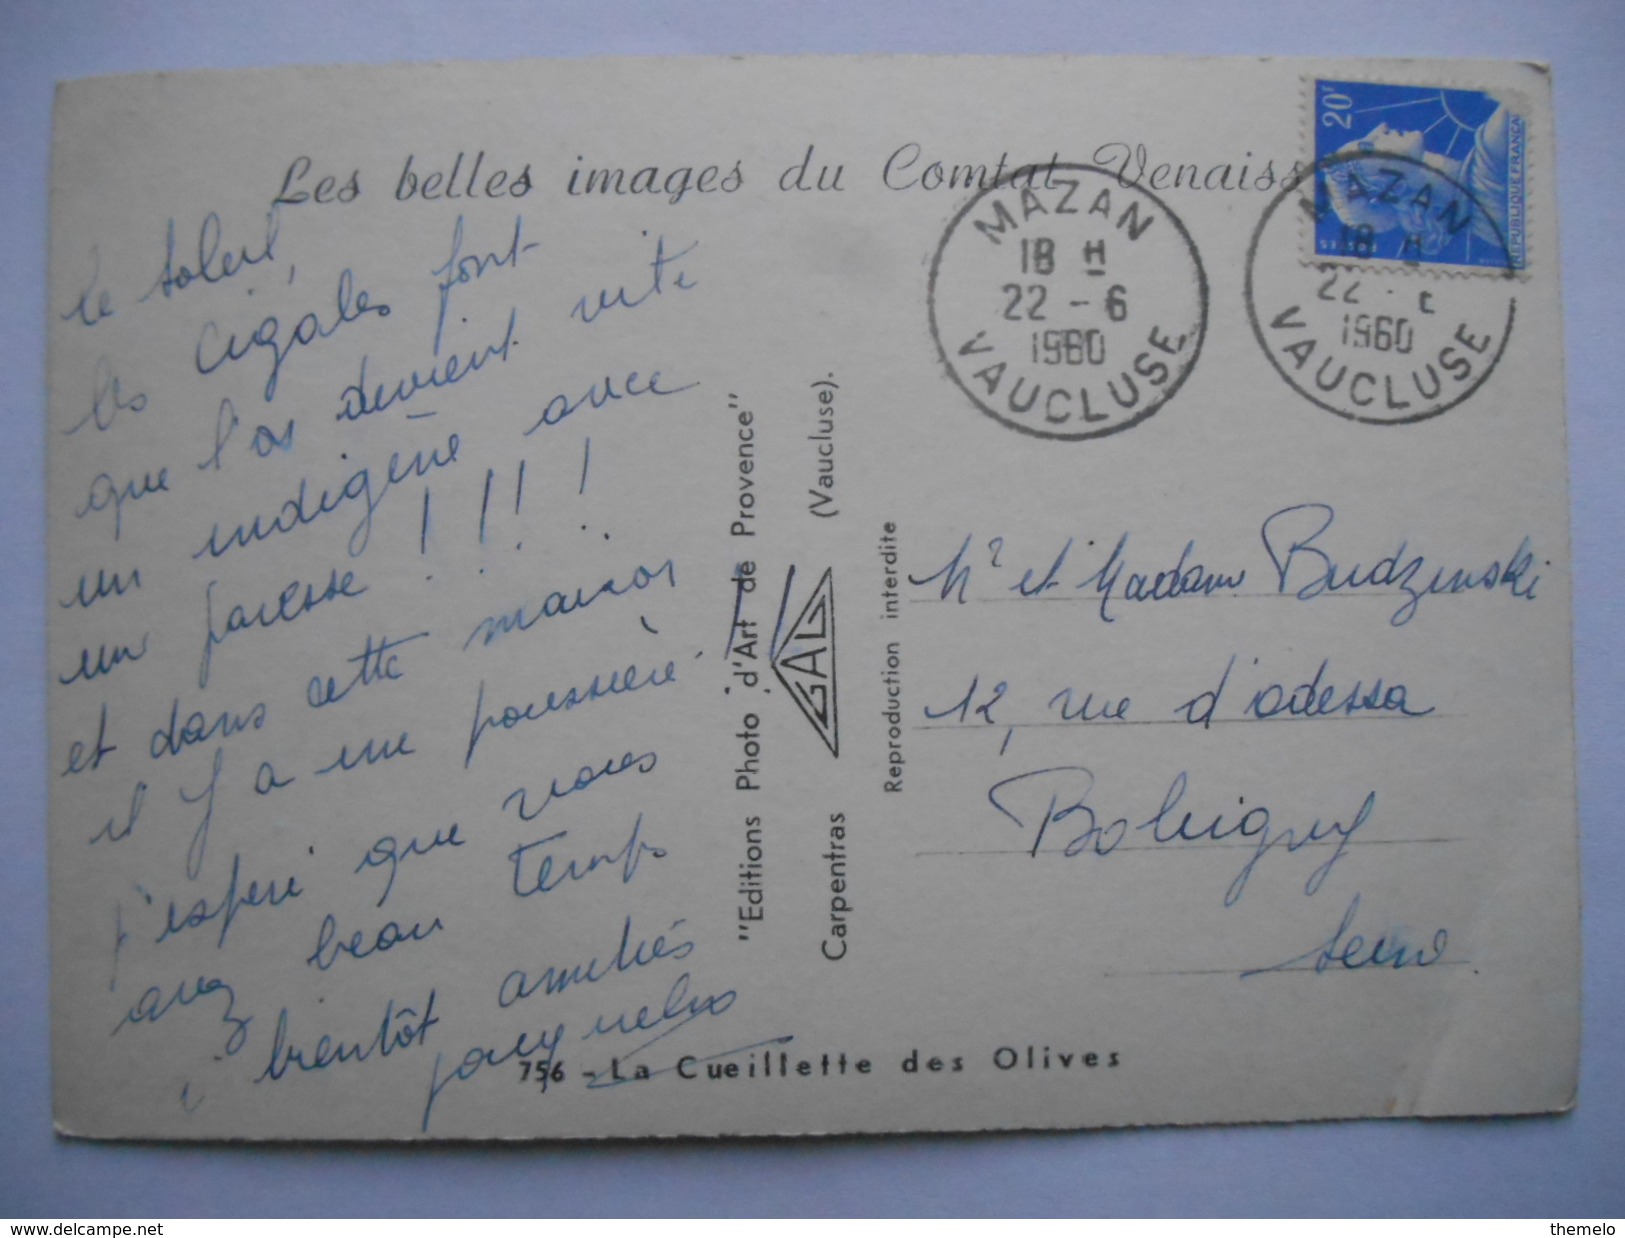 Les belles images du Comtat Venaiss
20F
REPUBLIQUE FRANÇAI
POSTES
MAZAN
18 H
22 - 6
1960
VAUCLUSE
MAZAN
18 H
22 -
1960
VAUCLUSE
le soleil,
les cigales font
que l'on devient vite
un indigène avec
une paresse !!!!
et dans cette maison
il y a une poussière
j'espère que vous
avez beau temps
à bientôt amitiés
Jacqueline
"Editions Photo d'Art de Provence"
Carpentras GAL (Vaucluse).
Reproduction interdite
Mr et Madame Budzinski
12, rue d'odessa
Bobigny
Seine
756 - La Cueillette des Olives
www.delcampe.net
themelo